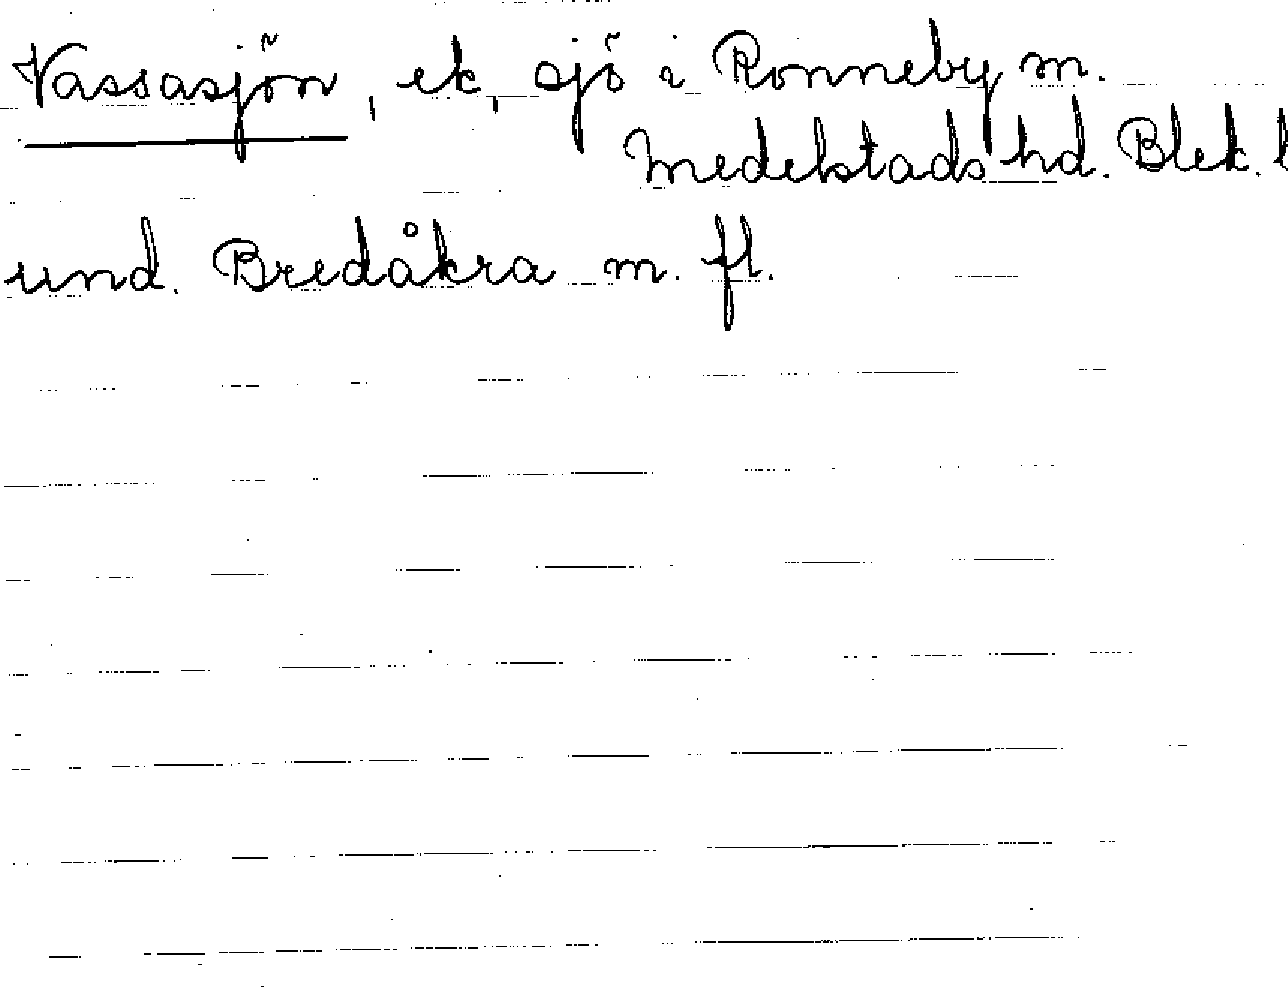 Vassasjön, ek, sjö i Ronneby m.
Medelstads hd. Blek. l
und. Bredåkra m. fl.